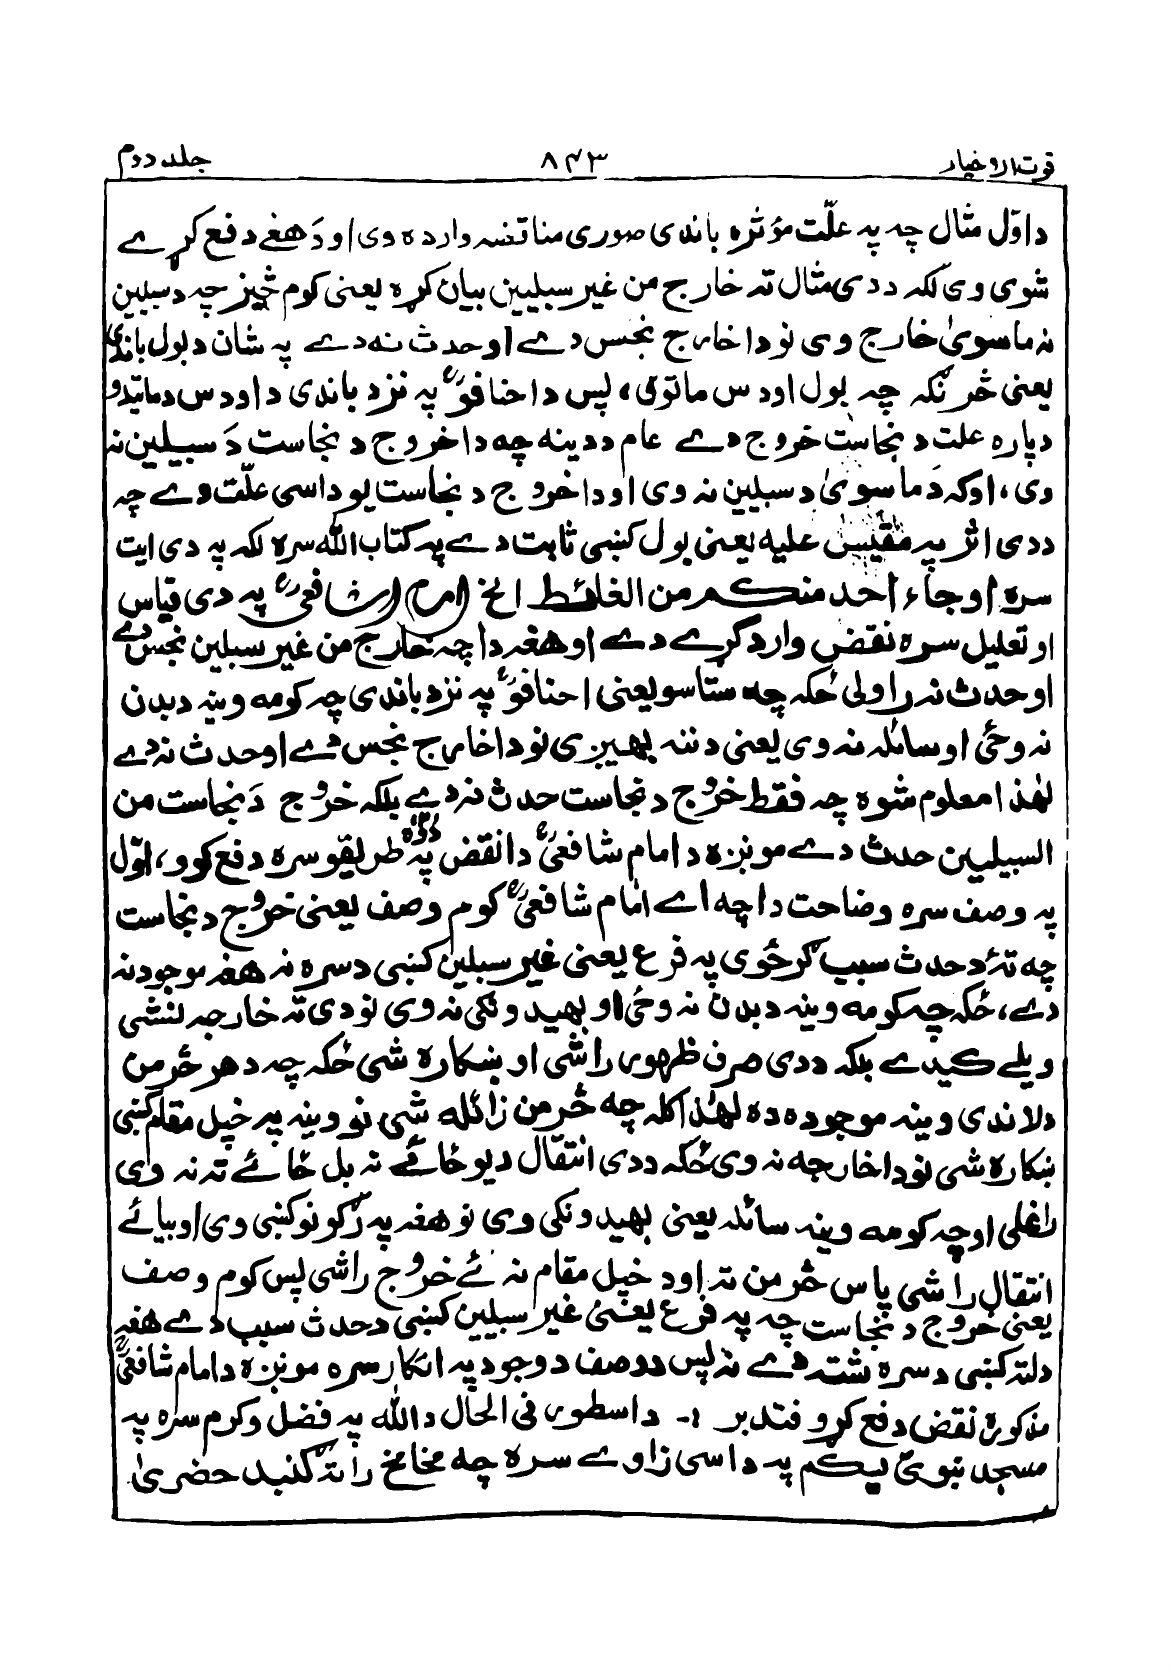 جلد دوم ۸۴۳ قوت الاخیار
داوّل مثال چه په علّت مؤثره باندی صوری مناقضه وارده وی او دَهغے دفع کړے
شوی وی لکه ددی مثال ته خارج من غیر سبیلین بیان کړه یعنی کوم څیز چه دسبلین
نه ماسویٰ خارج وی نو داخارج نجس دے اوحدث نه دے په شان دبول باندی
یعنی څرنګه چه بول اودس ماتوی، پس داحنافو په نزد باندی داودس دماتیدو
دپاره علت دنجاست خروج دے عام ددینه چه داخروج دنجاست دَسبیلین نه
وی، اوکه دَماسویٰ دسبلین نه وی اوداخروج دنجاست یو داسی علّت دے چه
ددی اثر په مقیس علیه یعنی بول کښی ثابت دے په کتاب الله سره لکه په دی ایت
سره اوجاء احد منکم من الغائط الخ امام شافعی په دی قیاس
اوتعلیل سره نقض وارد کړے دے اوهغه داچه خارج من غیر سبلین نجس دے
اوحدث نه راولی ځکه چه ستاسو یعنی احنافو په نزد باندی چه کومه وینه دبدن
نه وځی اوسائله نه وی یعنی دننه بهیږی نو داخارج نجس دے اوحدث نه دے
لهٰذا معلوم شوه چه فقط خروج دنجاست حدث نه دے بلکه خروج دَنجاست من
السبیلین حدث دے مونږه دامام شافعی دانقض په دوه طریقو سره دفع کوو، اوّل
په وصف سره وضاحت داچه اے امام شافعی کوم وصف یعنی خروج دنجاست
چه تهٔ دحدث سبب ګرځوی په فرع یعنی غیر سبلین کښی دسره نه هغه موجود نه
دے، ځکه چه کومه وینه دبدن نه وځی او بهیدونکی نه وی نو دی ته خارجه لنشی
ویلے کیدے بلکه ددی صرف ظهور راشی اوښکاره شی ځکه چه دهر څرمن
دلاندی وینه موجوده ده لهٰذا کله چه څرمن زائله شی نو وینه په خپل مقام کښی
ښکاره شی نو داخارجه نه وی ځکه ددی انتقال دیو ځائے نه بل ځائے ته نه وی
راغلی اوچه کومه وینه سائله یعنی بهیدونکی وی نو هغه په رګونو کښی وی اوبیائے
انتقال راشی پاس څرمن ته اودخپل مقام نه ئے خروج راشی پس کوم وصف
یعنی خروج دنجاست چه په فرع یعنی غیر سبیلین کښی دحدث سبب دے هغه
دلته کښی دسره نشته دے نه پس دوصف دوجود په انکار سره مونږه دامام شافعی
مذکوره نقض دفع کړو فتدبر :- داسطور فی الحال دالله په فضل وکرم سره په
مسجد نبوی لیکم په داسی زاوے سره چه مخامخ راته ګنبد حضریٰ